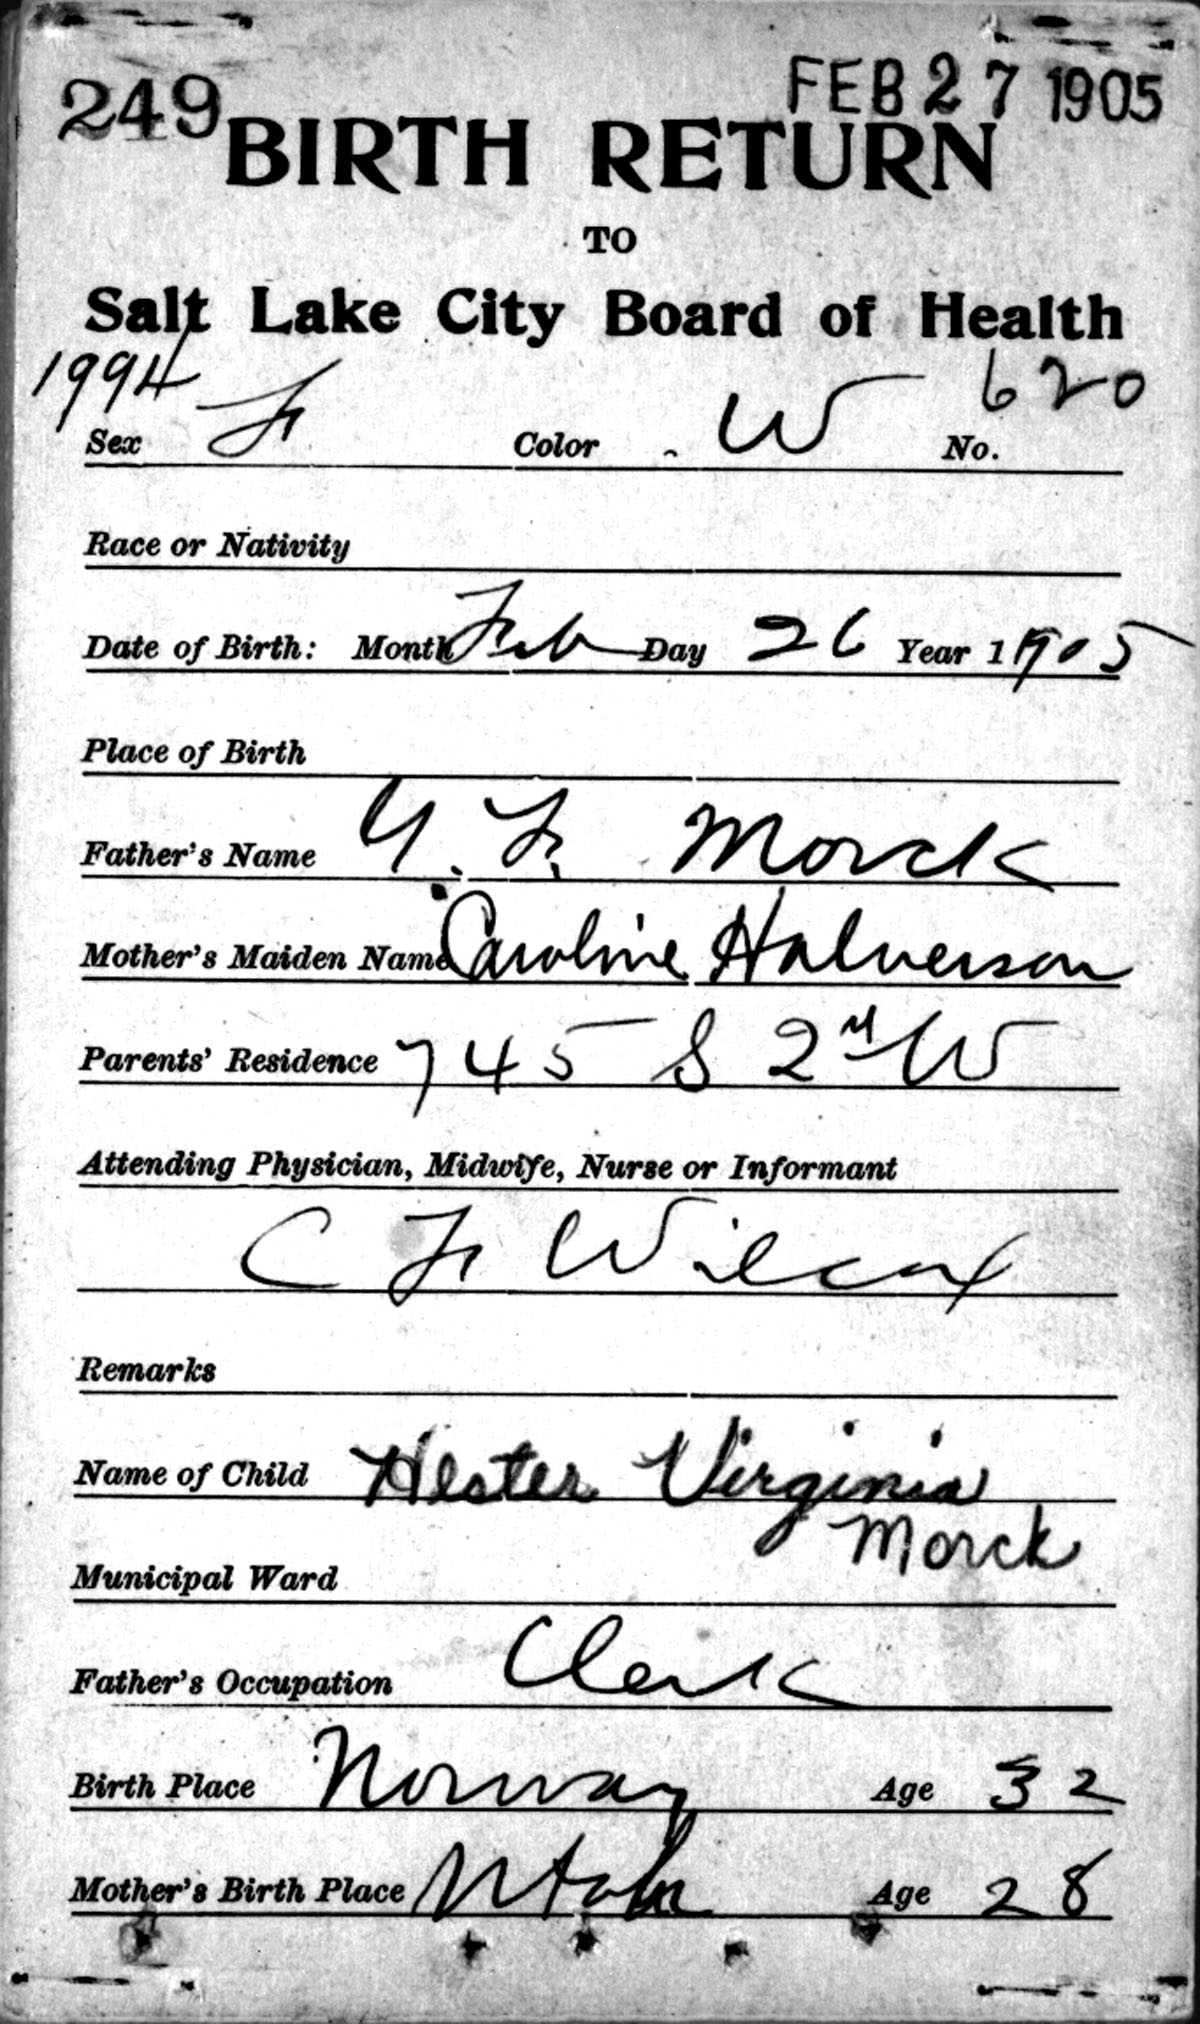 249 FEB 27 1905
BIRTH RETURN
TO
Salt Lake City Board of Health
1994 620
Sex F Color W No.
Race or Nativity
Date of Birth: Month Feb Day 26 Year 1905
Place of Birth
Father's Name G. F. Morck
Mother's Maiden Name Caroline Halverson
Parents' Residence 745 S 2nd W
Attending Physician, Midwife, Nurse or Informant
C F Wilcox
Remarks
Name of Child Hester Virginia
Morck
Municipal Ward
Father's Occupation Clerk
Birth Place Norway Age 32
Mother's Birth Place Utah Age 28